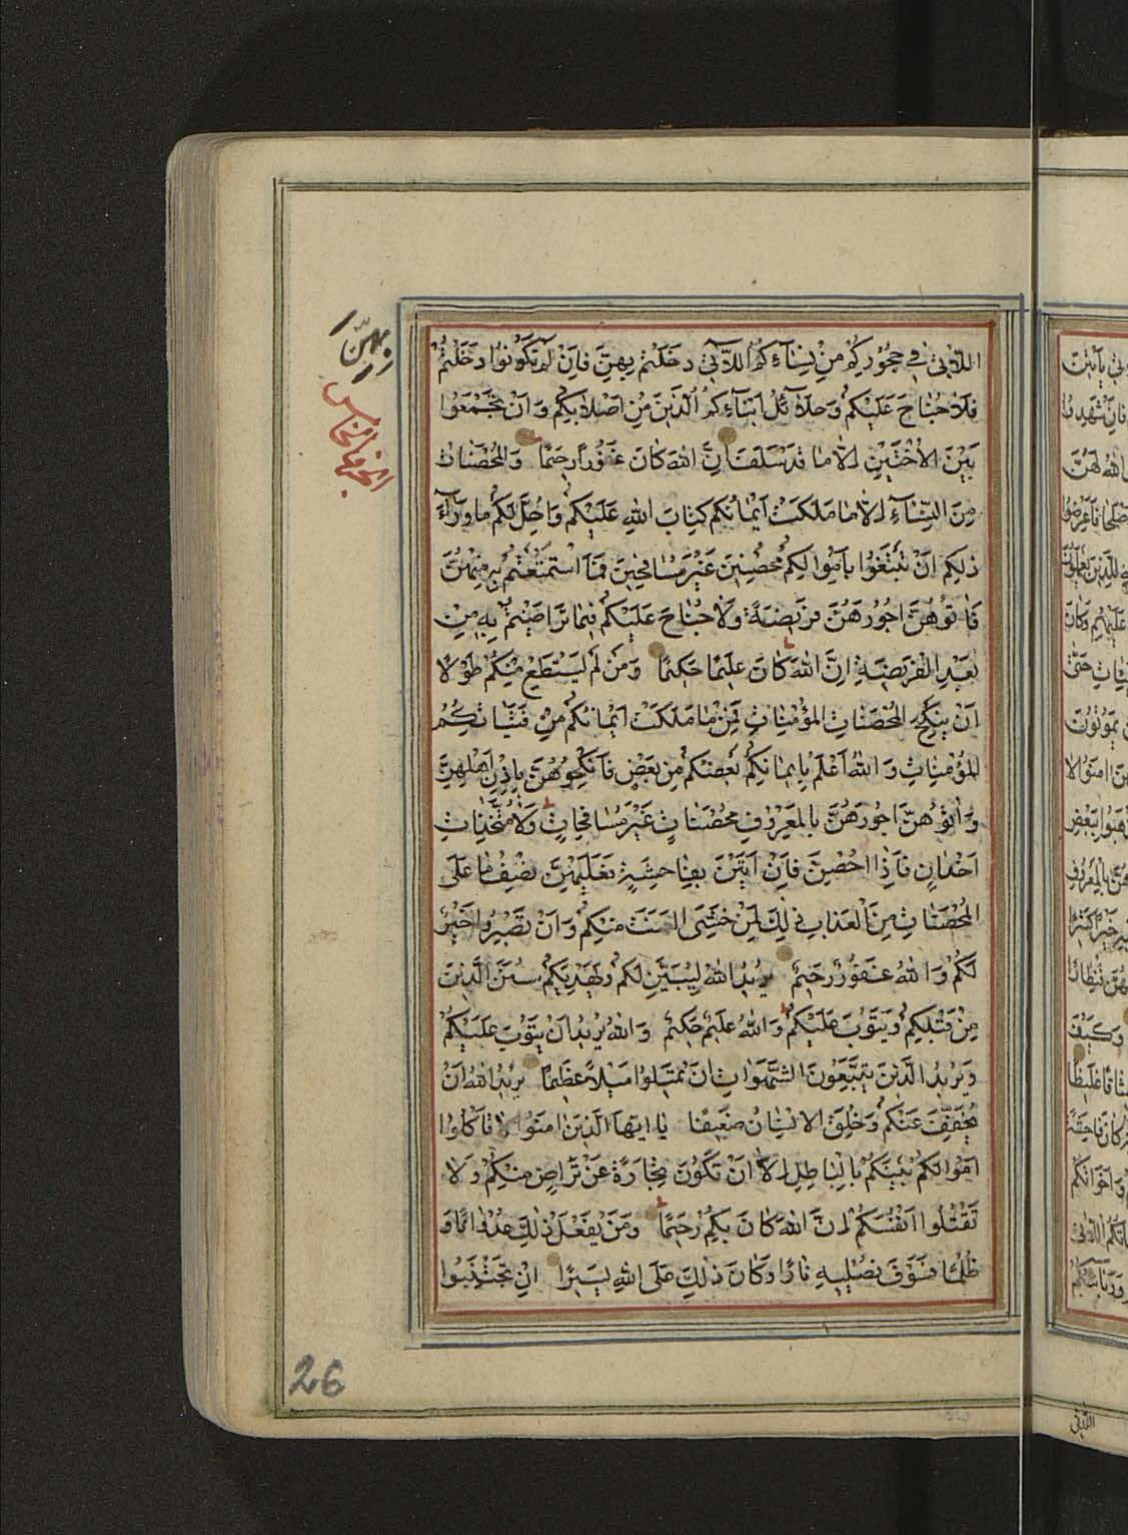 بهن
الجزء الخامس
اللَّاتِي فِي حُجُورِكُمْ مِنْ نِسَآءِكُمُ اللَّاتِي دَخَلْتُمْ بِهِنَّ فَاِنْ لَمْ تَكُونُوا دَخَلْتُمْ
فَلَا جُنَاحَ عَلَيْكُمْ وَحَلَآئِلُ اَبْنَآءِكُمُ الَّذِينَ مِنْ اَصْلَابِكُمْ وَاَنْ تَجْمَعُوا
بَيْنَ الْاُخْتَيْنِ اِلَّا مَا قَدْ سَلَفَ اِنَّ اللهَ كَانَ غَفُورًا رَحِيمًا وَالْمُحْصَنَاتُ
مِنَ النِّسَآءِ اِلَّا مَا مَلَكَتْ اَيْمَانُكُمْ كِتَابَ اللهِ عَلَيْكُمْ وَاُحِلَّ لَكُمْ مَا وَرَآءَ
ذٰلِكُمْ اَنْ تَبْتَغُوا بِاَمْوَالِكُمْ مُحْصِنِينَ غَيْرَ مُسَافِحِينَ فَمَا اسْتَمْتَعْتُمْ بِهِ مِنْهُنَّ
فَاٰتُوهُنَّ اُجُورَهُنَّ فَرِيضَةً وَلَا جُنَاحَ عَلَيْكُمْ فِيمَا تَرَاضَيْتُمْ بِهِ مِنْ
بَعْدِ الْفَرِيضَةِ اِنَّ اللهَ كَانَ عَلِيمًا حَكِيمًا وَمَنْ لَمْ يَسْتَطِعْ مِنْكُمْ طَوْلًا
اَنْ يَنْكِحَ الْمُحْصَنَاتِ الْمُؤْمِنَاتِ فَمِنْ مَا مَلَكَتْ اَيْمَانُكُمْ مِنْ فَتَيَاتِكُمُ
الْمُؤْمِنَاتِ وَاللهُ اَعْلَمُ بِاِيمَانِكُمْ بَعْضُكُمْ مِنْ بَعْضٍ فَانْكِحُوهُنَّ بِاِذْنِ اَهْلِهِنَّ
وَاٰتُوهُنَّ اُجُورَهُنَّ بِالْمَعْرُوفِ مُحْصَنَاتٍ غَيْرَ مُسَافِحَاتٍ وَلَا مُتَّخِذَاتِ
اَخْدَانٍ فَاِذَا اُحْصِنَّ فَاِنْ اَتَيْنَ بِفَاحِشَةٍ فَعَلَيْهِنَّ نِصْفُ مَا عَلَى
الْمُحْصَنَاتِ مِنَ الْعَذَابِ ذٰلِكَ لِمَنْ خَشِيَ الْعَنَتَ مِنْكُمْ وَاَنْ تَصْبِرُوا خَيْرٌ
لَكُمْ وَاللهُ غَفُورٌ رَحِيمٌ يُرِيدُ اللهُ لِيُبَيِّنَ لَكُمْ وَيَهْدِيَكُمْ سُنَنَ الَّذِينَ
مِنْ قَبْلِكُمْ وَيَتُوبَ عَلَيْكُمْ وَاللهُ عَلِيمٌ حَكِيمٌ وَاللهُ يُرِيدُ اَنْ يَتُوبَ عَلَيْكُمْ
وَيُرِيدُ الَّذِينَ يَتَّبِعُونَ الشَّهَوَاتِ اَنْ تَمِيلُوا مَيْلًا عَظِيمًا يُرِيدُ اللهُ اَنْ
يُخَفِّفَ عَنْكُمْ وَخُلِقَ الْاِنْسَانُ ضَعِيفًا يَا اَيُّهَا الَّذِينَ اٰمَنُوا لَا تَاْكُلُوا
اَمْوَالَكُمْ بَيْنَكُمْ بِالْبَاطِلِ اِلَّا اَنْ تَكُونَ تِجَارَةً عَنْ تَرَاضٍ مِنْكُمْ وَلَا
تَقْتُلُوا اَنْفُسَكُمْ اِنَّ اللهَ كَانَ بِكُمْ رَحِيمًا وَمَنْ يَفْعَلْ ذٰلِكَ عُدْوَانًا وَ
ظُلْمًا فَسَوْفَ نُصْلِيهِ نَارًا وَكَانَ ذٰلِكَ عَلَى اللهِ يَسِيرًا اِنْ تَجْتَنِبُوا
26
اللاتى